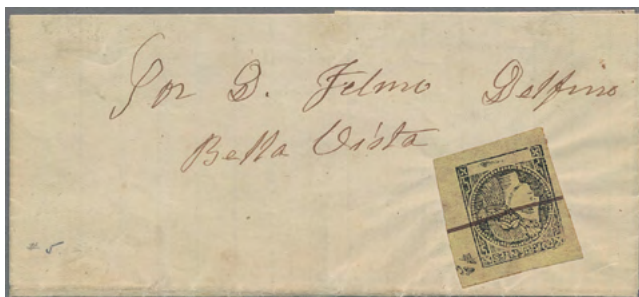 Sor D. Telmo Delfino
Bella Vista